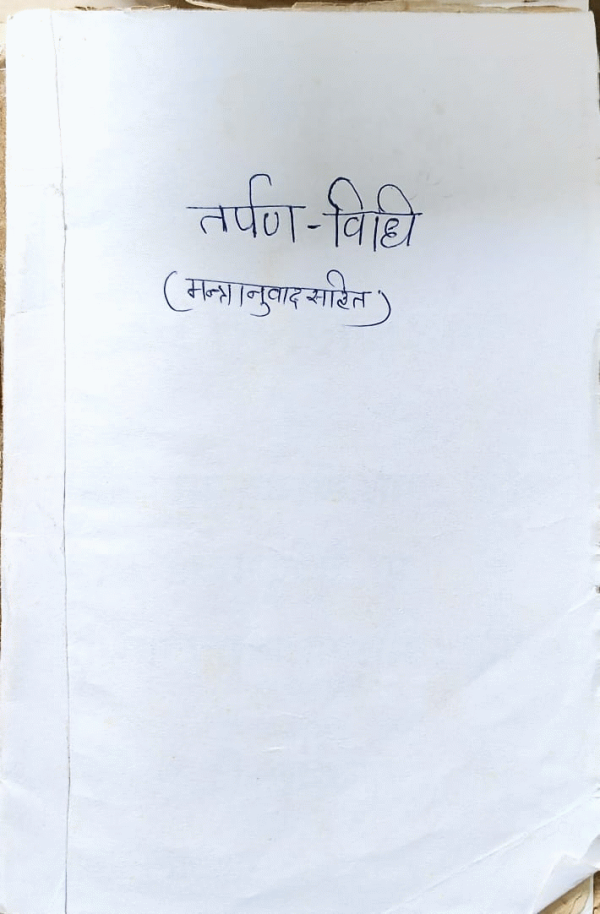 तर्पण - विधि
(मन्त्रानुवाद सहित)